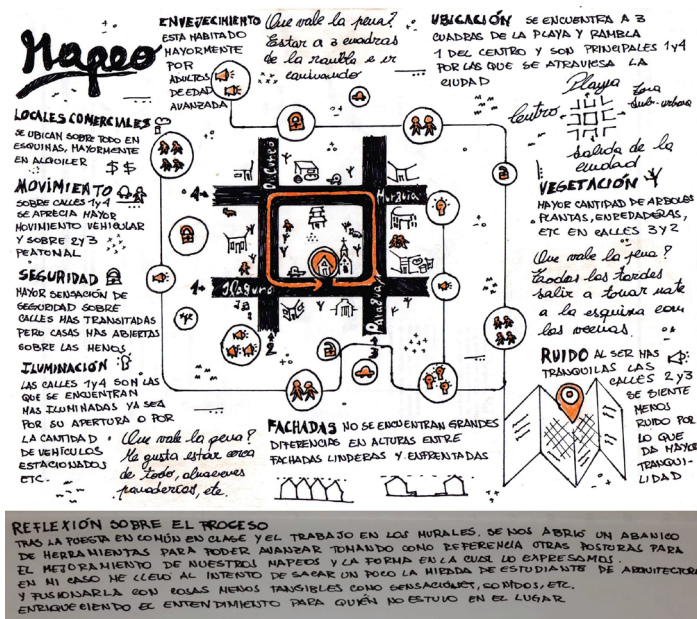 Mapeo
ENVEJECIMIENTO
ESTA HABITADO
MAYORMENTE
POR
ADULTOS
DE EDAD
AVANZADA
Que vale la pena?
Estar a 3 cuadras
de la rambla e ir
caminando
UBICACIÓN SE ENCUENTRA A 3
CUADRAS DE LA PLAYA Y RAMBLA
1 DEL CENTRO Y SON PRINCIPALES 1 Y 4
POR LAS QUE SE ATRAVIESA LA
CIUDAD
Playa
Centro
Zona
Sub-urbana
Salida de la
ciudad
LOCALES COMERCIALES
SE UBICAN SOBRE TODO EN
ESQUINAS, MAYORMENTE
EN ALQUILER $$
MOVIMIENTO
SOBRE CALLES 1 Y 4
SE APRECIA MAYOR
MOVIMIENTO VEHICULAR
Y SOBRE 2 Y 3
PEATONAL
SEGURIDAD
MAYOR SENSACIÓN DE
SEGURIDAD SOBRE
CALLES MAS TRANSITADAS
PERO CASAS MAS ABIERTAS
SOBRE LAS MENOS
ILUMINACIÓN
LAS CALLES 1 Y 4 SON LAS
QUE SE ENCUENTRAN
MAS ILUMINADAS YA SEA
POR SU APERTURA O POR
LA CANTIDAD
DE VEHÍCULOS
ESTACIONADOS
ETC.
Que vale la pena?
Me gusta estar cerca
de todo, almacenes
panaderias, etc.
4
1
2
3
FACHADAS NO SE ENCUENTRAN GRANDES
DIFERENCIAS EN ALTURAS ENTRE
FACHADAS LINDERAS Y ENFRENTADAS
VEGETACIÓN
MAYOR CANTIDAD DE ARBOLES
PLANTAS, ENREDADERAS,
ETC EN CALLES 3 Y 2
Que vale la pena?
Todas las tardes
salir a tomar mate
a la esquina con
las vecinas.
RUIDO AL SER MAS
TRANQUILAS LAS
CALLES 2 Y 3
SE SIENTE
MENOS
RUIDO POR
LO QUE
DA MAYOR
TRANQUI-
LIDAD
REFLEXIÓN SOBRE EL PROCESO
TRAS LA PUESTA EN COMÚN EN CLASE Y EL TRABAJO EN LOS MURALES, SE NOS ABRIO UN ABANICO
DE HERRAMIENTAS PARA PODER AVANZAR TOMANDO COMO REFERENCIA OTRAS POSTURAS PARA
EL MEJORAMIENTO DE NUESTROS MAPEOS Y LA FORMA EN LA CUAL LO EXPRESAMOS.
EN MI CASO ME LLEVO AL INTENTO DE SACAR UN POCO LA MIRADA DE ESTUDIANTE DE ARQUITECTURA
Y FUSIONARLA CON COSAS MENOS TANGIBLES COMO SENSACIONES, SONIDOS, ETC.
ENRIQUECIENDO EL ENTENDIMIENTO PARA QUIÉN NO ESTUVO EN EL LUGAR